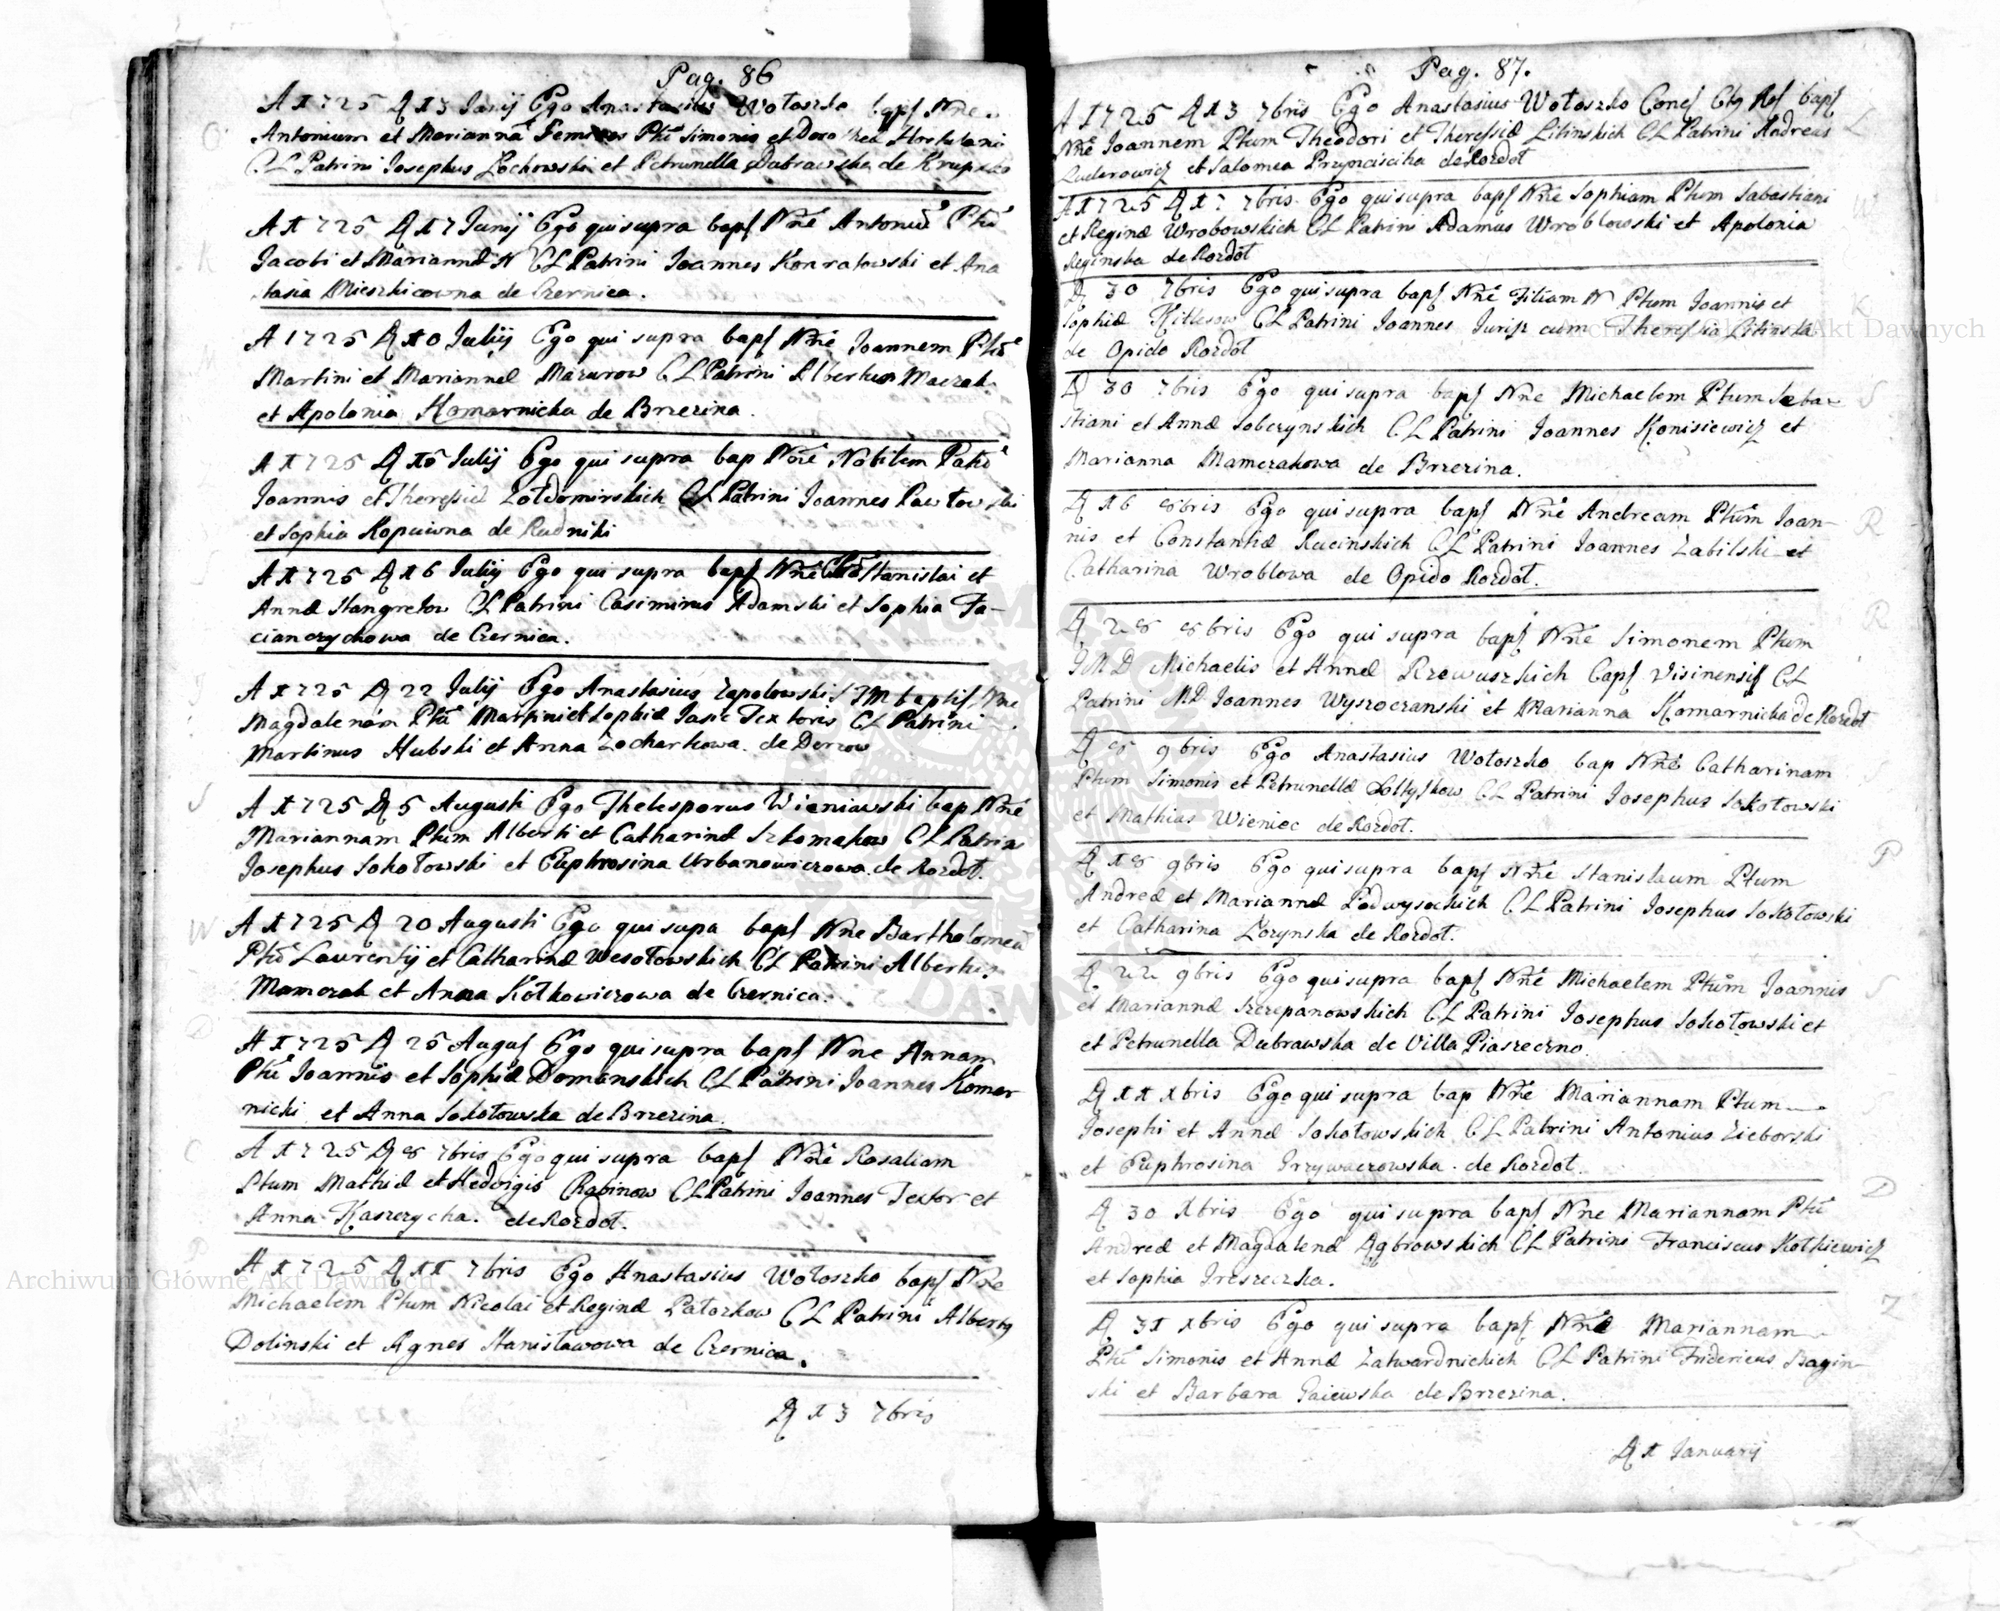 Pag. 86
A 1725 D 13 Junij Ego Anastasius Wołoszko bapt Nne
Antonium et Mariannã Gemi Ptũ Simonis et
CL Patrini Josephus Zochowski et Petrunella Dubrawska de Krupsko
A 1725 D 17 Junij Ego qui supra bapt Nñe Antoniũ Ptũ
Jacobi et Mariannæ N CL Patrini Joannes Konratowski et Ana
tasia Mieszkicowna de Czernica.
A 1725 D 10 Julij Ego qui supra bapt Nñe Joannem Ptũ
Martini et Mariannæ Mazurow CL Patrini Albertus Maczak
et Apolonia Komarnicka de Brzezina.
A 1725 D 15 Julij Ego qui supra bap Nñe Nobilem
Joannis et Theressiæ CL Patrini Joannes Pawłowski
et Sophia Kopciwna de Rudniki
A 1725 D 16 Julij Ego qui supra bapt Nñe Stanislai et
Annæ Stangretow CL Patrini Casimirus Adamski et Sophia Fa-
cianczychowa de Czernica.
A 1725 D 22 Julij Ego Anastasius Zapolowski baptis Nne
Magdalenam Ptũ Martini et Sophiæ Textoris CL Patrini
Martinus Hubski et Anna Zocharkowa de Derzow
A 1725 D 5 Augusti Ego Thelesporus Wieniawski bap Nñe
Mariannam Ptum Alberti et Catharinæ CL Patrini
Josephus Sokołowski et Euphrosina Urbanowiczowa de Rozdoł.
A 1725 D 20 Augusti Ego qui supa bapt Nñe Bartholomeũ
Ptũ Laurentij et Catharinæ Wesołowskich CL Patrini Albertus
Mamczak et Anna Kołkowiczowa de Czernica.
A 1725 D 25 August Ego qui supra bapt Nne Annam
Ptũ Joannis et Sophiæ Domanskich CL Patrini Joannes Komar
nicki et Anna Sokołowska de Brzezina
A 1725 D 8 7bris Ego qui supra bapt Nñe Rosaliam
Ptum Mathiæ et Hedvigis Chabinow CL Patrini Joannes Textor et
Anna Kaszczycha. de Rozdoł.
A 1725 D 11 7bris Ego Anastasius Wołoszko bapt Nñe
Michaelem Ptum Nicolai et Reginæ Patorkow CL Patrini Alberty
Dolinski et Agnes Stanisławowa de Czernica.
D 13 7bris
Pag. 87.
A 1725 D 13 7bris Ego Anastasius Wołoszko bapt
Nñe Joannem Ptum Theodori et Theressiæ Litinskich CL Patrini Andreas
et Salomea de Rozdoł
A 1725 D 7bris Ego qui supra bapt Nñe Sophiam Ptum Sabastiani
et Reginæ Wrobowskich CL Patrini Adamus Wroblowski et Apolonia
Reginska de Rozdoł
D 30 7bris Ego qui supra bapt Nñe Filiam N Ptum Joannis et
Sophiæ Kitlosow CL Patrini Joannes cum Theressia Litinska
de Opido Rozdoł
D 30 7bris Ego qui supra bapt Nñe Michaelem Ptum Seba-
stiani et Annæ Soberynskich CL Patrini Joannes Konisiewicz et
Marianna Mamczakowa de Brzezina.
D 16 8bris Ego qui supra bapt Nñe Andream Ptũm Joan-
nis et Constantiæ Rucinskich CL Patrini Joannes Zabilski et
Catharina Wroblowa de Opido Rozdoł.
D 28 8bris Ego qui supra bapt Nñe Simonem Ptum
GMD Michaelis et Annæ Rzewuszkich Capt Visinensis CL
Patrini MD Joannes Wysoczanski et Marianna Komarnicka de Rozdoł
D 8 9bris Ego Anastasius Wołoszko bap Nñe Catharinam
Ptum Simonis et Petrunellæ CL Patrini Josephus Sokołowski
et Mathias Wienioc de Rozdoł.
D 18 9bris Ego qui supra bapt Nñe Stanislaum Ptum
Andreæ et Mariannæ Podwysockich CL Patrini Josephus Sokołowski
et Catharina Zozynska de Rozdoł.
D 22 9bris Ego qui supra bapt Nñe Michaelem Ptũm Joannis
et Mariannæ Szczepanowskich CL Patrini Josephus Sokołowski et
et Petrunella Dubrawska de Villa Piaszeczno.
D 11 xbris Ego qui supra bap Nñe Mariannam Ptum
Josephi et Annæ Sokołowskich CL Patrini Antonius Zieborski
et Euphrosina Grzywaczowska de Rozdoł.
D 30 Xbris Ego qui supra bapt Nne Mariannam Ptũ
Andreæ et Magdalenæ Dąbrowskich CL Patrini Franciscus Kołkiewicz
et Sophia
D 31 xbris Ego qui supra bapt Nñe Mariannam
Ptũ Simonis et Annæ Zatwardnickich CL Patrini Fridericus Bagin-
ski et Barbara Gaiewska de Brzezina.
D 1 Januarij
Archiwum Główne Akt Dawnych